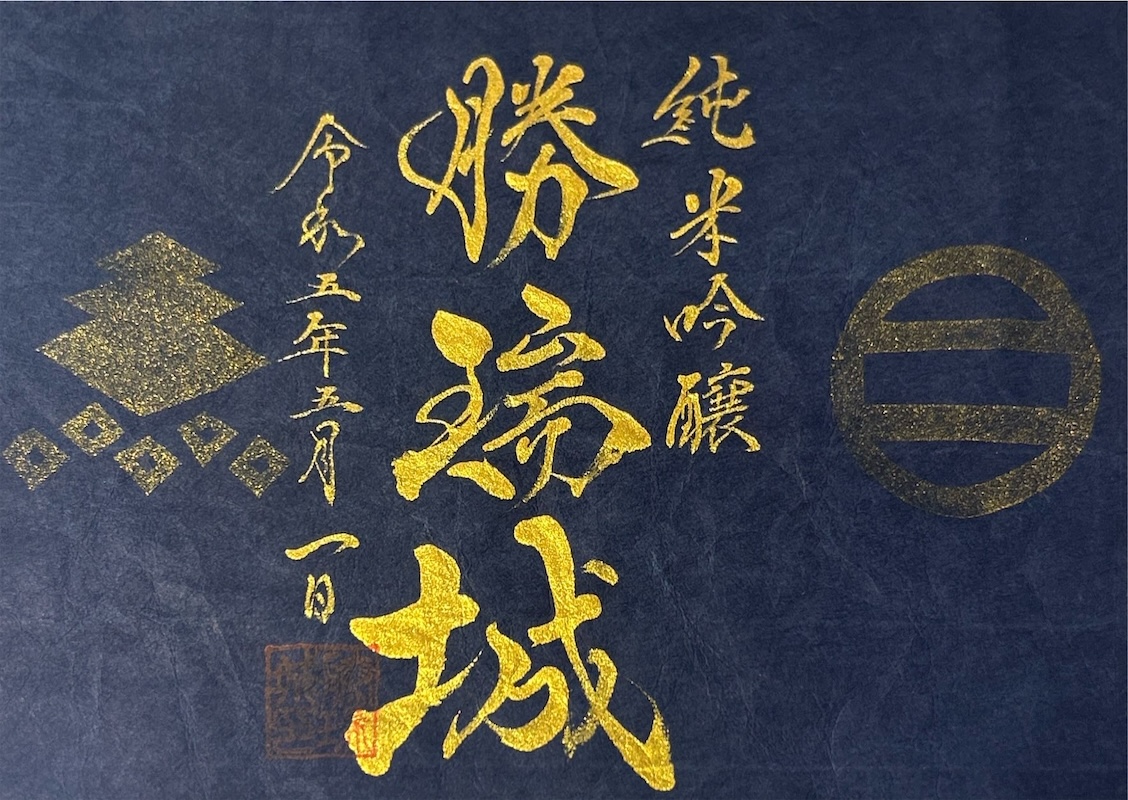 純米吟醸
勝瑞城
令和五年五月一日